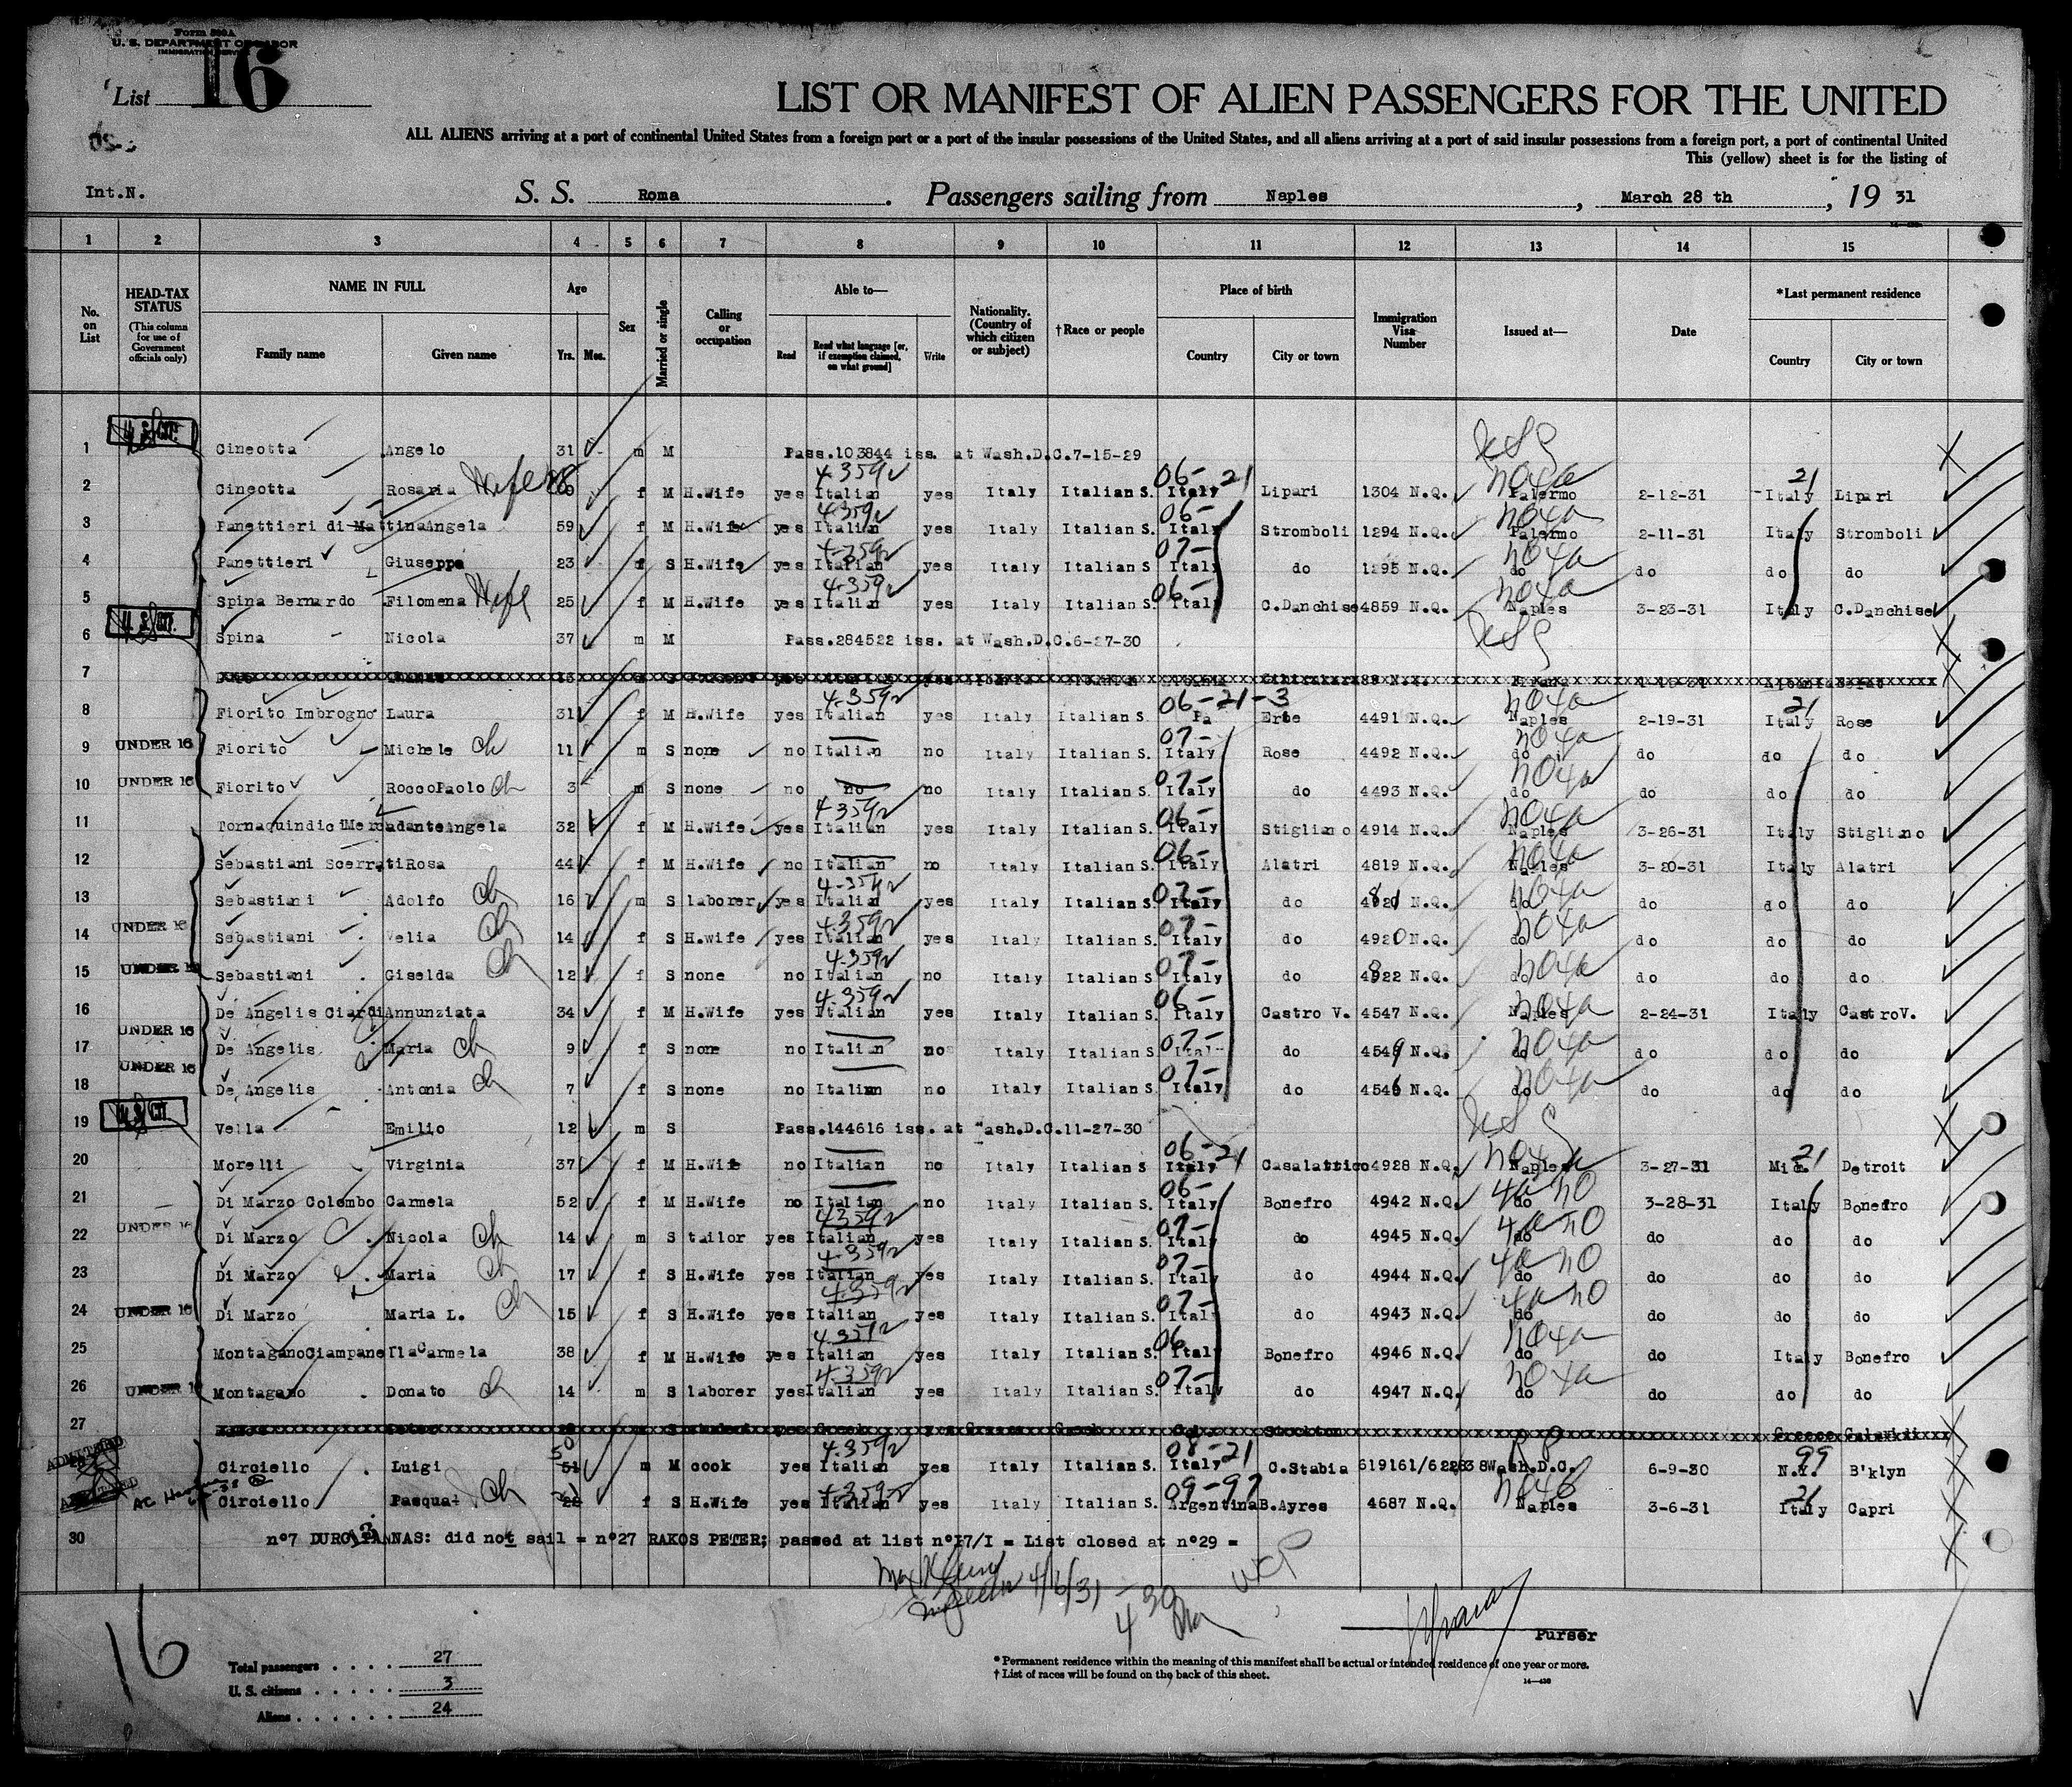 Form 500A
U. S. DEPARTMENT OF LABOR
IMMIGRATION SERVICE
List 16
LIST OR MANIFEST OF ALIEN PASSENGERS FOR THE UNITED
ALL ALIENS arriving at a port of continental United States from a foreign port or a port of the insular possessions of the United States, and all aliens arriving at a port of said insular possessions from a foreign port, a port of continental United
This (yellow) sheet is for the listing of
Int.N. S. S. Roma. Passengers sailing from Naples, March 28 th, 19 31
1 2 3 4 5 6 7 8 9 10 11 12 13 14 15
No. on List
HEAD-TAX STATUS (This column for use of Government officials only)
NAME IN FULL Family name Given name
Age Yrs. Mos.
Sex
Married or single
Calling or occupation
Able to— Read Read what language [or, if exemption claimed, on what ground] Write
Nationality. (Country of which citizen or subject)
†Race or people
Place of birth Country City or town
Immigration Visa Number
Issued at—
Date
*Last permanent residence Country City or town
1 U.S. CIT. Cincotta Angelo 31 m M Pass.103844 iss. at Wash.D.C.7-15-29
2 Cincotta Rosaria Wife f M H.Wife yes Italian 4359 yes Italy Italian S. 06-21 Italy Lipari 1304 N.Q. no4a Palermo 2-12-31 21 Italy Lipari
3 Panettieri di Mattina Angela 59 f M H.Wife yes Italian 4359 yes Italy Italian S. 06- Italy Stromboli 1294 N.Q. no4a Palermo 2-11-31 Italy Stromboli
4 Panettieri Giuseppa 23 f S H.Wife yes Italian 4359 yes Italy Italian S 07- Italy do 1295 N.Q. no4a do do do do
5 Spina Bernardo Filomena Wife 25 f M H.Wife yes Italian 4359 yes Italy Italian S. 06- Italy C.Danchise 4859 N.Q. no4a Naples 3-23-31 Italy C.Danchise
6 U.S. CIT. Spina Nicola 37 m M Pass.284522 iss. at Wash.D.C.6-27-30
7
8 Fiorito Imbrogno Laura 31 f M H.Wife yes Italian 4359 yes Italy Italian S. 06-21-3 Pa Erie 4491 N.Q. no4a Naples 2-19-31 21 Italy Rose
9 UNDER 16 Fiorito Michele ch 11 m S none no Italian no Italy Italian S. 07- Italy Rose 4492 N.Q. no4a do do do do
10 UNDER 16 Fiorito RoccoPaolo ch 3 m S none no no no Italy Italian S. 07- Italy do 4493 N.Q. no4a do do do do
11 Tornaquindici Mercadante Angela 32 f M H.Wife yes Italian 4359 yes Italy Italian S. 06- Italy Stigliano 4914 N.Q. no4a Naples 3-26-31 Italy Stigliano
12 Sebastiani Scerrati Rosa 44 f M H.Wife no Italian no Italy Italian S. 06- Italy Alatri 4819 N.Q. no4a Naples 3-20-31 Italy Alatri
13 Sebastiani Adolfo ch 16 m S laborer yes Italian 4359 yes Italy Italian S. 07- Italy do N.Q. no4a do do do do
14 UNDER 16 Sebastiani Velia ch 14 f S H.wife yes Italian 4359 yes Italy Italian S. 07- Italy do 4920 N.Q. no4a do do do do
15 UNDER 16 Sebastiani Giselda ch 12 f S none no Italian 4359 no Italy Italian S. 07- Italy do N.Q. no4a do do do do
16 De Angelis Ciardi Annunziata 34 f M H.Wife yes Italian 4359 yes Italy Italian S. 06- Italy Castro V. 4547 N.Q. no4a Naples 2-24-31 Italy CastroV.
17 UNDER 16 De Angelis Maria ch 9 f S none no Italian no Italy Italian S. 07- Italy do 4549 N.Q. no4a do do do do
18 UNDER 16 De Angelis Antonia ch 7 f S none no Italian no Italy Italian S. 07- Italy do 4546 N.Q. no4a do do do do
19 U.S. CIT. Vella Emilio 12 m S Pass.144616 iss. at Wash.D.C.11-27-30
20 Morelli Virginia 37 f M H.Wife no Italian no Italy Italian S 06-21 Italy Casalattico 4928 N.Q. no4a Naples 3-27-31 21 Detroit
21 Di Marzo Colombo Carmela 52 f M H.Wife no Italian no Italy Italian S. 06- Italy Bonefro 4942 N.Q. 4a no do 3-28-31 Italy Bonefro
22 UNDER 16 Di Marzo Nicola ch 14 m S tailor yes Italian 4359 yes Italy Italian S. 07- Italy do 4945 N.Q. 4a no do do do do
23 Di Marzo Maria ch 17 f S H.Wife yes Italian 4359 yes Italy Italian S. 07- Italy do 4944 N.Q. 4a no do do do do
24 UNDER 16 Di Marzo Maria L. ch 15 f S H.Wife yes Italian 4359 yes Italy Italian S. 07- Italy do 4943 N.Q. 4a no do do do do
25 Montagano Ciampanella Carmela 38 f M H.Wife yes Italian 4359 yes Italy Italian S. 06 Italy Bonefro 4946 N.Q. no4a do do Italy Bonefro
26 UNDER 16 Montagano Donato ch 14 m S laborer yes Italian 4359 yes Italy Italian S. 07- Italy do 4947 N.Q. no4a do do do do
27 Stockton
ADMITTED Ciroiello Luigi 50 m M cook yes Italian 4359 yes Italy Italian S. 08-21 Italy C.Stabia Wash.D.C. 6-9-30 99 N.Y. B'klyn
ADMITTED Ciroiello ch f S H.Wife yes Italian 4359 yes Italy Italian S. 09-97 Argentina B.Ayres 4687 N.Q. Naples 3-6-31 21 Italy Capri
30 n°7 did not sail = n°27 RAKOS PETER; passed at list n°17/I = List closed at n°29 =
4/6/31 - 4 30
Purser
16
Total passengers . . . . 27
U. S. citizens . . . . . 3
Aliens . . . . . . 24
*Permanent residence within the meaning of this manifest shall be actual or intended residence of one year or more.
†List of races will be found on the back of this sheet.